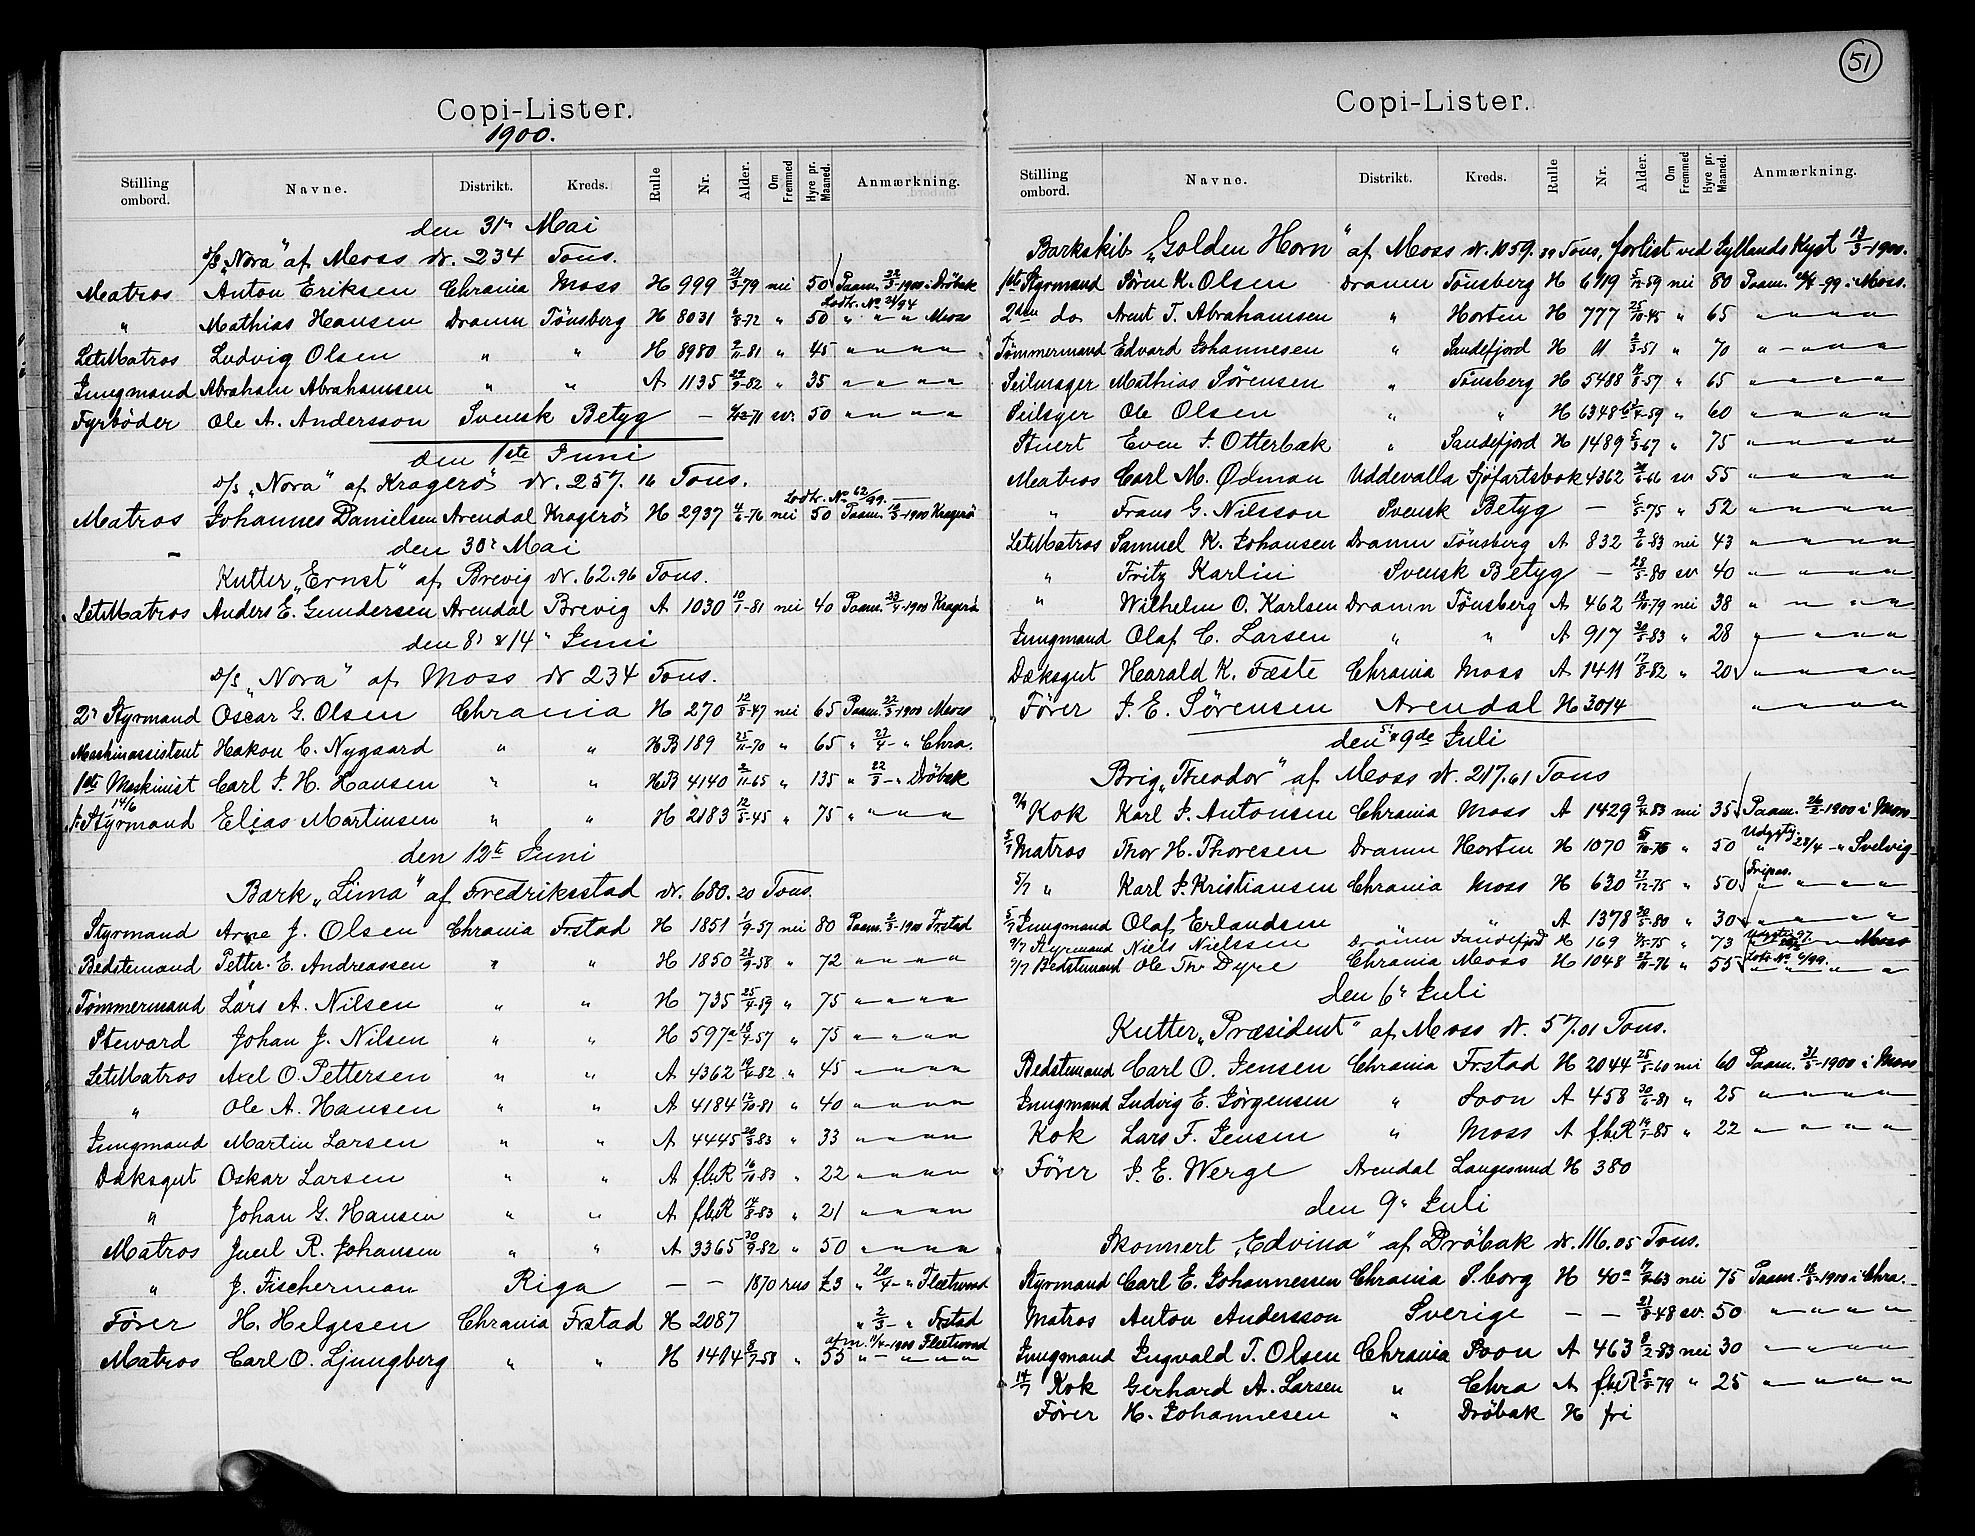 Copi-Lister.
1900.
Stilling ombord. Navne. Distrikt. Kreds. Rulle Nr. Alder. Om Fremmed Hyre pr. Maaned. Anmærkning.
den 31" Mai
D/S „Nora" af Moss dr. 234 Tons.
Matros Anton Eriksen Chrania Moss H 999 21/3-79 nei 50 Paam. 22/3-1900 i Drøbak
Lodtr. No 21/94
" Mathias Hansen Dramn Tønsberg H 8031 " 50 " " " Moss
LetMatros Ludvig Olsen " " H 8980 2/11-81 " 45 " " " "
Jungmand Abraham Abrahamsen " " A 1135 27/9-82 " 35 " " " "
Fyrbøder Ole A. Andersson Svensk Betyg — sv. 50 " " " "
den 1ste Juni
D/S „Nora" af Kragerø dr. 257.16 Tons.
Lodtr. No 62/99.
Matros Johannes Danielsen Arendal Kragerø H 2937 4/6-76 nei 50 Paam. 1900 Kragerø
den 30' Mai
Kutter „Ernst" af Brevig dr. 62.96 Tons.
LetMatros Anders E. Gundersen Arendal Brevig A 1030 10/1-81 nei 40 Paam. 23/4-1900 Kragerø
den 8' & 14" Juni
D/S „Nora" af Moss dr 234 Tons.
2' Styrmand Oscar G. Olsen Chrania H 270 12/8-47 nei 65 Paam. 22/3-1900 Moss
Maskinassistent Hakon C. Nygaard " " HB 189 25/11-70 " 65 " 27/4- " Chra.
1ste Maskinist Carl J. H. Hansen " " HB 4140 2/11-65 " 135 " 22/3- " Drøbak
14/6
1' Styrmand Elias Martinsen " " H 2183 12/5-45 " 75 " " " "
den 12te Juni
Bark „Lima" af Fredriksstad dr. 680.20 Tons.
Styrmand Arne J. Olsen Chrania Frstad H 1851 1/9-57 nei 80 Paam. 2/3-1900 Frstad
Bedstemand Petter E. Andreassen " " H 1850 23/9-58 " 72 " " " "
Tømmermand Lars A. Nilsen " " H 735 25/4-59 " 75 " " " "
Steward Johan J. Nilsen " " H 597a 18/4-57 " 75 " " " "
LetMatros Axel O. Pettersen " " A 4362 " 45 " " " "
" Ole A. Hansen " " A 4184 12/10-81 " 40 " " " "
Jungmand Martin Larsen " " A 4445 " 33 " " " "
Dæksgut Oskar Larsen " " A fbiR 16/10-83 " 22 " " " "
" Johan G. Hansen " " A fbiR 14/8-83 " 21 " " " "
Matros Juel R. Johansen " " A 3365 30/9-82 " 50 " " " "
" J. Fischerman Riga — — 1870 rus £3 " 20/4- " Fleetwood
Fører H. Helgesen Chrania Frstad H 2087 " 2/3- " Frstad
afm. 11/4-1900 Fleetwood
Matros Carl O. Ljungberg " " H 1414 8/7-58 " 55 " " " "
51
Copi-Lister.
Stilling ombord. Navne. Distrikt. Kreds. Rulle Nr. Alder. Om Fremmed Hyre pr. Maaned. Anmærkning.
Barkskib „Golden Horn" af Moss dr. 1059.39 Tons, forlist ved Jyllands Kyst 13/3-1900.
1ste Styrmand Søren K. Olsen Dramn Tønsberg H 6719 5/12-59 nei 80 Paam. -99 i Moss.
2den do Arnt T. Abrahamsen " Horten H 777 25/10-45 " 65 " " " "
Tømmermand Edvard Johannesen " Sandefjord H 2/3-51 " 70 " " " "
Seilmager Mathias Sørensen " Tønsberg H 5488 " 65 " " " "
Seilsyer Ole Olsen " " H 6348 -59 " 60 " " " "
Stuert Even J. Otterbæk " Sandefjord H 1489 5/3-67 " 75 " " " "
Matros Carl M. Ødman Uddevalla Sjøfartsbok 4362 sv 55 " " " "
" Frans G. Nilsson Svensk Betyg — 5/5-75 " 52 " " " "
LetMatros Samuel K. Johansen Dramn Tønsberg A 832 9/6-83 nei 43 " " " "
" Fritz Karlin Svensk Betyg — 28/5-80 sv 40 " " " "
" Wilhelm O. Karlsen Dramn Tønsberg A 462 -79 nei 38 " " " "
Jungmand Olaf C. Larsen " " A 917 -83 " 28 " " " "
Dæksgut Harald K. Fæste Chrania Moss A 1411 17/8-82 " 20 " " " "
Fører J. E. Sørensen Arendal H 3014 " " " "
den 5' & 9de Juli
Brig „Theodor" af Moss dr. 217.61 Tons
9/7 Kok Karl J. Antonsen Chrania Moss A 1429 -83 nei 35 Paam. 1900 i Moss
Udgytj.
5/7 Matros Thor H. Thoresen Dramn Horten H 1070 " 50 " 28/4 - " Svelvig
Fripas.
5/7 " Karl J. Kristiansen Chrania Moss H 630 27/12-75 " 50 " " " "
5/7 Jungmand Olaf Erlandsen " A 1378 30/5-80 " 30 " " " "
9/7 Styrmand Niels Nielssen Dramn Sandefjord H 169 -75 " 73 Moss
9/7 Bedstemand Ole Th. Dyre Chrania Moss H 1048 -76 " 55 Lodtr. No 6/99.
den 6" Juli
Kutter „Præsident" af Moss dr. 57.01 Tons.
Bedstemand Carl O. Jensen Chrania Frstad H 2044 25/5-60 nei 60 Paam. 31/5-1900 i Moss
Jungmand Ludvig E. Jørgensen " Soon A 458 30/6-81 " 25 " " " "
Kok Lars F. Jensen " Moss A fbiR -85 " 22 " " " "
Fører J. E. Werge Arendal Langesund H 380
den 9" Juli
Skonnert „Edvina" af Drøbak dr. 116.05 Tons.
Styrmand Carl E. Johannessen Chrania S.borg H 40a -63 nei 75 Paam. 1900 i Chra.
Matros Anton Andersson Sverige — — 21/8-48 sv. 50 " " " "
Jungmand Ingvald T. Olsen Chrania Soon A 463 8/2-83 nei 30 " " " "
14/7 Kok Gerhard A. Larsen " Chra A fbiR -79 " 25 " " " "
Fører H. Johannesen " Drøbak H fri